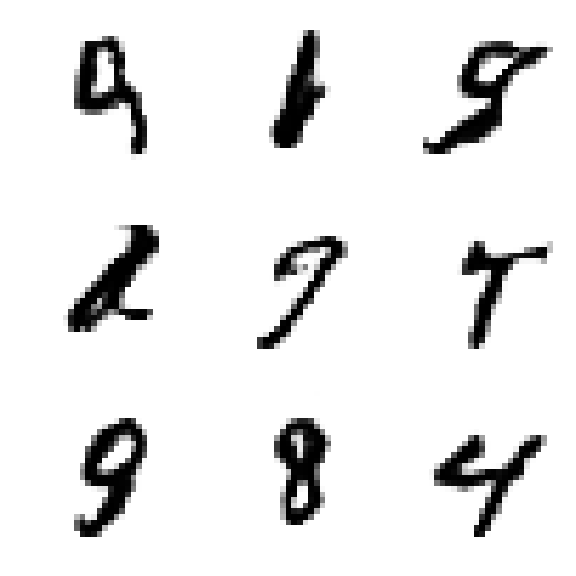 9 1 9
2 7 7
9 8 4